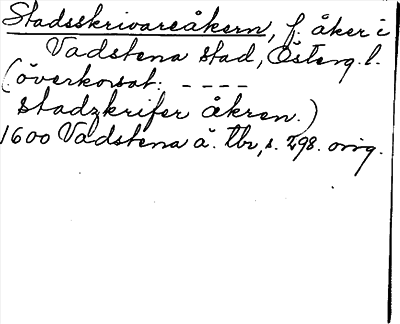 Stadsskrivareåkern, f. åker i
Vadstena stad, Österg. l.
(överkorsat: ----
stadzkrifer åkren.)
1600 Vadstena ä. tbr, s. 298. orig.